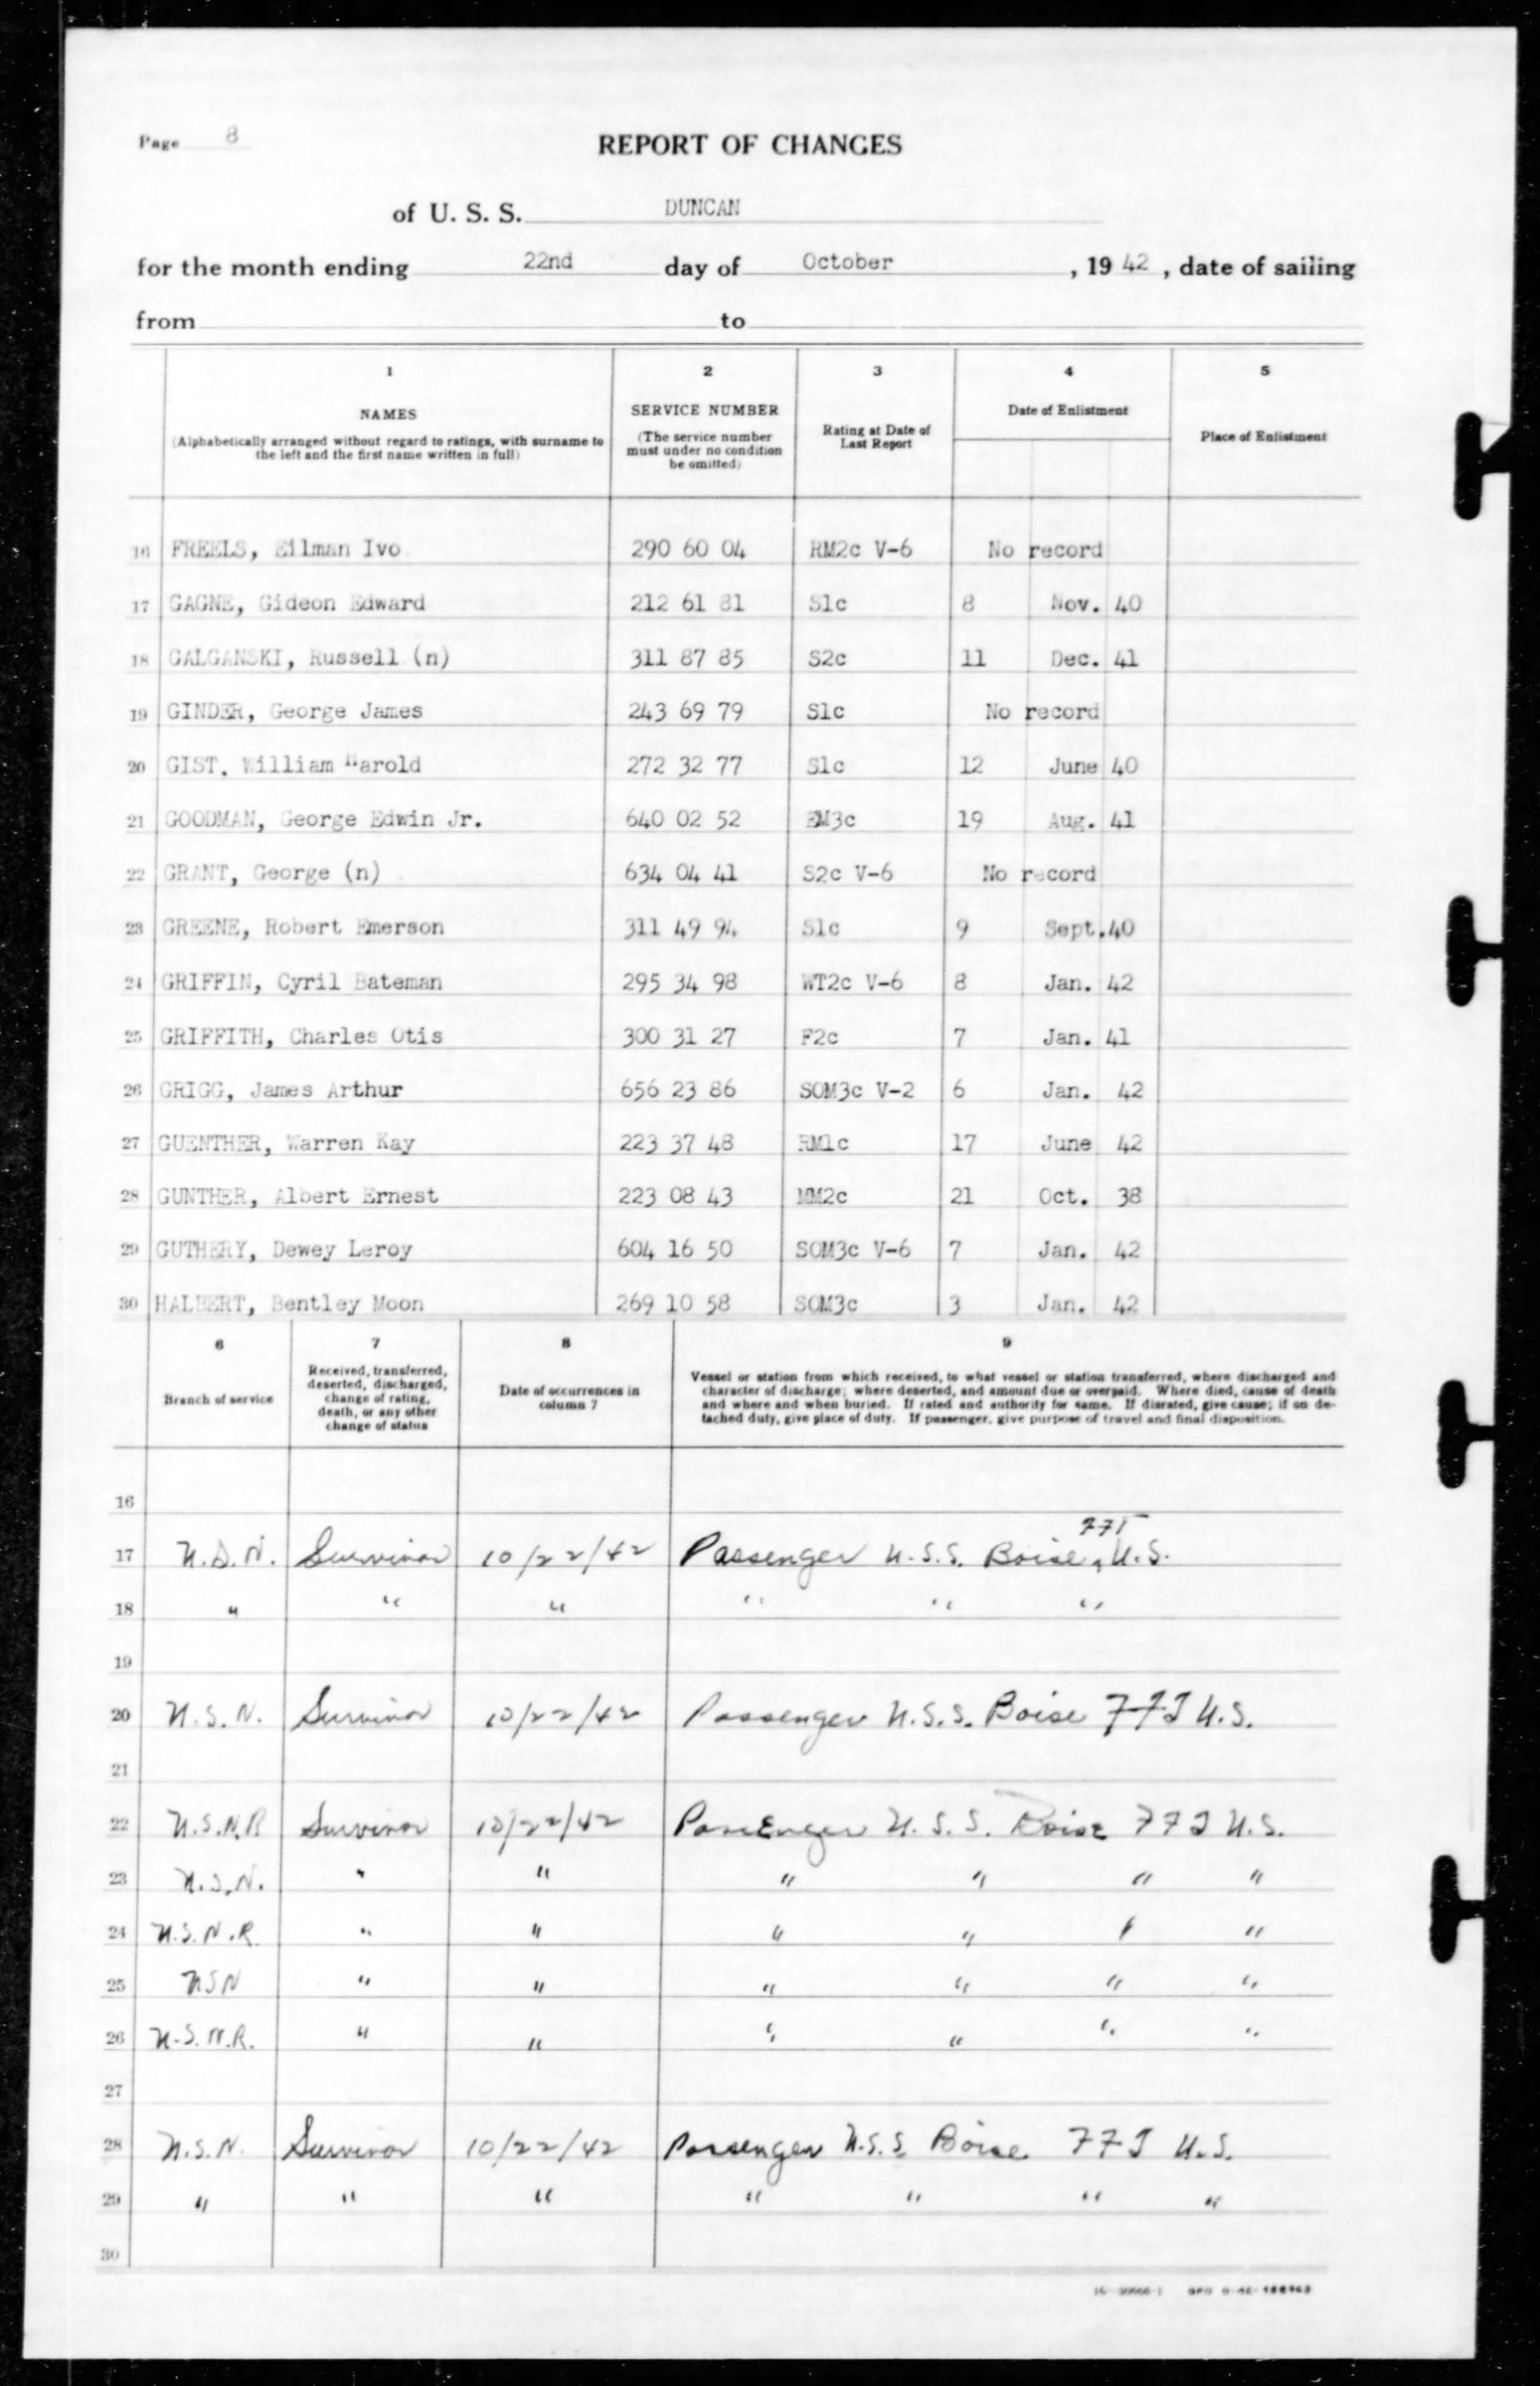 Page 8
REPORT OF CHANGES
of U. S. S. DUNCAN
for the month ending 22nd day of October , 19 42 , date of sailing
from to
1 2 3 4 5
NAMES
(Alphabetically arranged without regard to ratings, with surname to
the left and the first name written in full)
SERVICE NUMBER
(The service number
must under no condition
be omitted)
Rating at Date of
Last Report
Date of Enlistment
Place of Enlistment
16 FREELS, Eilman Ivo 290 60 04 RM2c V-6 No record
17 GAGNE, Gideon Edward 212 61 81 S1c 8 Nov. 40
18 GALGANSKI, Russell (n) 311 87 85 S2c 11 Dec. 41
19 GINDER, George James 243 69 79 S1c No record
20 GIST, William Harold 272 32 77 S1c 12 June 40
21 GOODMAN, George Edwin Jr. 640 02 52 EM3c 19 Aug. 41
22 GRANT, George (n) 634 04 41 S2c V-6 No record
23 GREENE, Robert Emerson 311 49 94 S1c 9 Sept.40
24 GRIFFIN, Cyril Bateman 295 34 98 WT2c V-6 8 Jan. 42
25 GRIFFITH, Charles Otis 300 31 27 F2c 7 Jan. 41
26 GRIGG, James Arthur 656 23 86 SOM3c V-2 6 Jan. 42
27 GUENTHER, Warren Kay 223 37 48 RM1c 17 June 42
28 GUNTHER, Albert Ernest 223 08 43 MM2c 21 Oct. 38
29 GUTHERY, Dewey Leroy 604 16 50 SOM3c V-6 7 Jan. 42
30 HALBERT, Bentley Moon 269 10 58 SOM3c 3 Jan. 42
6 7 8 9
Branch of service
Received, transferred,
deserted, discharged,
change of rating,
death, or any other
change of status
Date of occurrences in
column 7
Vessel or station from which received, to what vessel or station transferred, where discharged and
character of discharge; where deserted, and amount due or overpaid. Where died, cause of death
and where and when buried. If rated and authority for same. If disrated, give cause; if on de-
tached duty, give place of duty. If passenger, give purpose of travel and final disposition.
16
17 U.S.N. Survivor 10/22/42 Passenger U.S.S. Boise, FFT U.S.
18 " " " " " "
19
20 U.S.N. Survivor 10/22/42 Passenger U.S.S. Boise FFT U.S.
21
22 U.S.N.R Survivor 10/22/42 Passenger U.S.S. Boise FFT U.S.
23 U.S.N. " " " " " "
24 U.S.N.R. " " " " " "
25 USN " " " " " "
26 U.S.N.R. " " " " " "
27
28 U.S.N. Survivor 10/22/42 Passenger U.S.S. Boise FFT U.S.
29 " " " " " " "
30